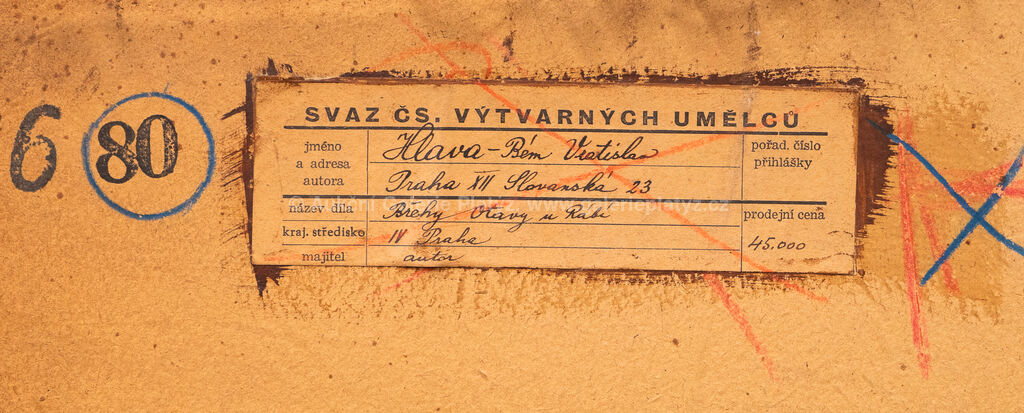 6 80
SVAZ ČS. VÝTVARNÝCH UMĚLCŮ
jméno
a adresa
autora
Hlava-Bém Vratislav
Praha XII Slovanská 23
pořad. číslo
přihlášky
název díla
Břehy Otavy u Rabí
prodejní cena
kraj. středisko
IV Praha
45.000
majitel
autor